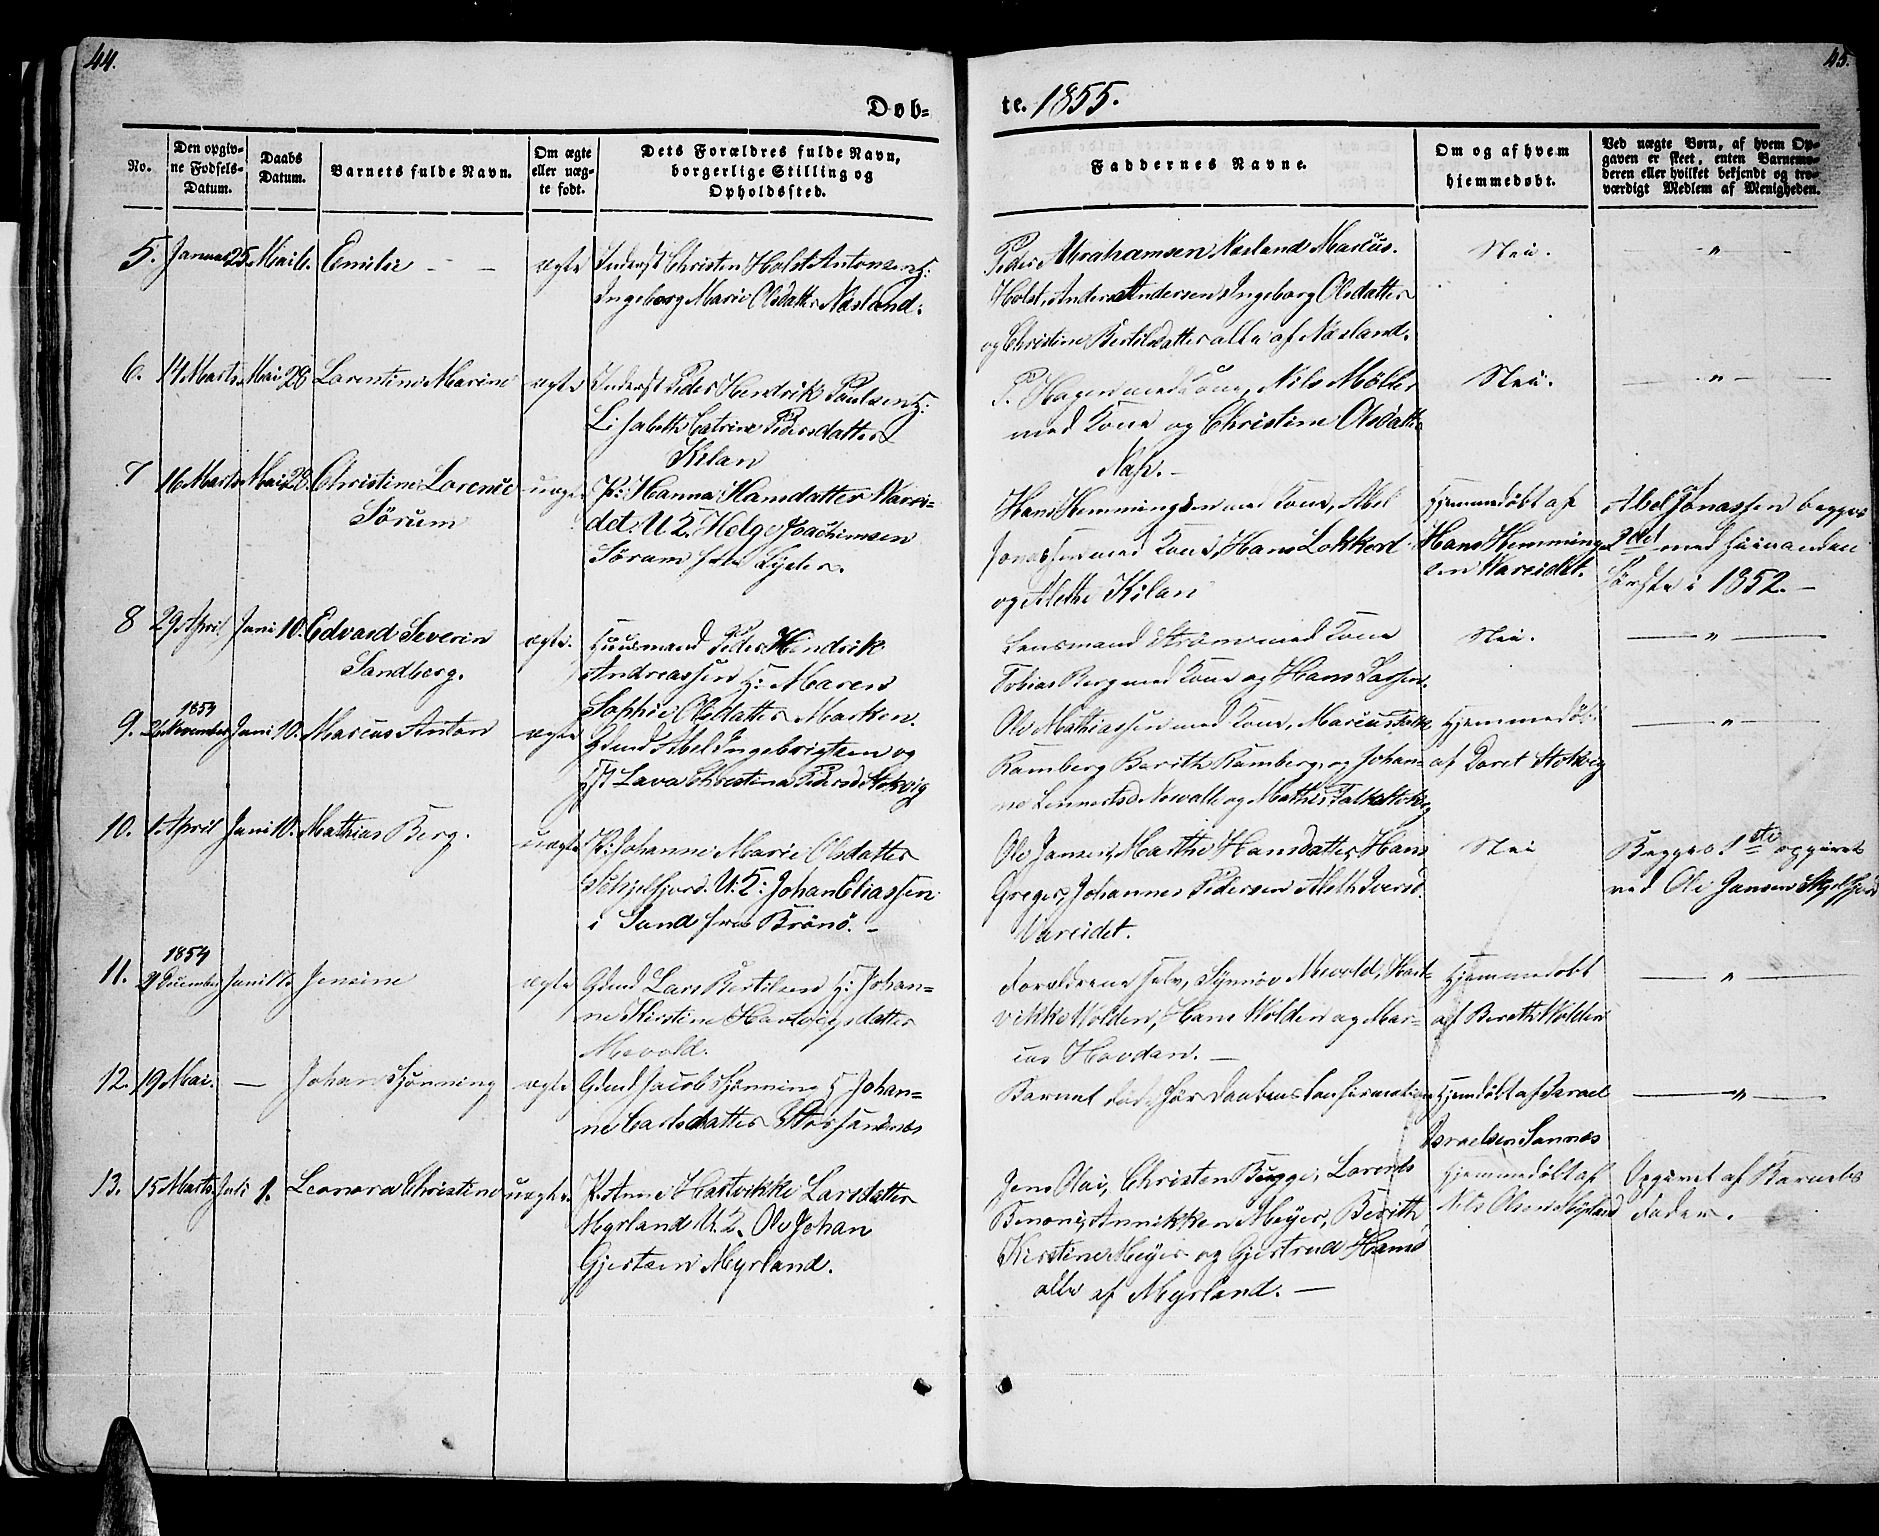 44.
45.
Døb-
te. 1855.
No.
Den opgiv-
ne Fødsels-
Datum.
Daabs
Datum.
Barnets fulde Navn.
Om ægte
eller uæg-
te født.
Dets Forældres fulde Navn,
borgerlige Stilling og
Opholdssted.
Faddernes Navne.
Om og af hvem
hjemmedøbt.
Ved uægte Børn, af hvem Op-
gaven er skeet, enten Barnemo-
deren eller hvilket bekjendt og tro-
værdigt Medlem af Menigheden.
5. Januar 25. Mai 6. Emilie - - ægte Inderst Christen Holst Antonsen H:
Ingeborg Marie Olsdatter Næsland.
Peder Abrahamsen Næsland Marcus
Holst, Anders Andersen, Ingeborg Olsdatter
og Christine Bertilsdatter alle af Næsland.
Nei.
— " —
6. 14 Marts Mai 28 Larentine Marine ægte Inderst Peder Hendrik Paulsen H:
Lisabeth Catrine Pedersdatter
Kilan
P. Hagen med Kone, Nils Møller
med Kone og Christine Olsdatter
Nap. -
Nei.
— " —
7 16 Marts Mai 28. Christine Lorense
Sørum
uægte P: Hanna Hansdatter Varei-
det. U 2, Helge Joachimsen
Sørum
Hans Hemmingsen med Kone, Abel
Jonassen med Kone, Hans Løkkerd
og Alethe Kilan
Hjemmedøbt af
Hans Hemming-
sen Vareidet.
Abel Jonassen begges
2det med hinanden
første i 1852. -
8 29 April Juni 10. Edvard Severin
Sandberg.
ægte. Huusmand Peder Hindrik
Andreassen H: Maren
Sophie Olsdatter Marken.
Lensmand Strøm med Kone
Tobias Berg med Kone og Hans Lassen.
Nei.
— " —
9. 1854
26 November Juni 10. Marcus Anton ægte Gdmd Abel Ingebrigtsen og
Hst Lava Christina Pedersd Stokvig
Ole Mathiassen med Kone, Marcus Falk
Ramberg Barith Ramberg, og Johan-
ne Lennertsd Nowall og Mathis Falk Stokvig
Hjemmedøbt
af Doret Stokvig
— " —
10. 1. April Juni 10. Mathias Berg. uægte P: Johanne Marie Olsdatter
Skjelfjord. U. 2: Johan Eliassen
i Sund fra Brønø. -
Ole Jansen, Marthe Hansdatter, Hans
Greger, Johannes Pedersen Aleth Iversd
Vareidet.
Nei
Begges 1ste opgivet
ved Ole Jansen Skjelfjord
11. 1854
21 December Juni 17. Jensine ægte Gdmd Lars Bertilsen H: Johan-
ne Kirstine Hartvigsdatter
Mevold.
Forældrene selv, Synnøv Mevold, Hart-
vikke Volden, Hans Volden og Mar-
cus Hovdan. -
Hjemmedøbt
af Berett Volden
— " —
12. 19 Mai. — Johan Hjønning ægte Gdmd Jacob Hjønning H Johan-
ne Carlsdatter Storsandnæs
Barnet død før Daabens Confirmation
Hjemdøbt af Israel
Israelsen Sannæs
— " —
13. 15 Marts. Juli 1. Leonora Christine uægte P. Anne Hartvikke Larsdatter
Myrland U. 2. Ole Johan
Gjertsen Myrland.
Jens Olai, Christen Bugge, Lorents
Benoni, Annikken Meyer, Berith
Kirstine Meyer og Gjertrud Hansd
alle af Myrland. —
Hjemmedøbt af
Nils Olsen Myrland
Opgivet af Barnets
Fader.